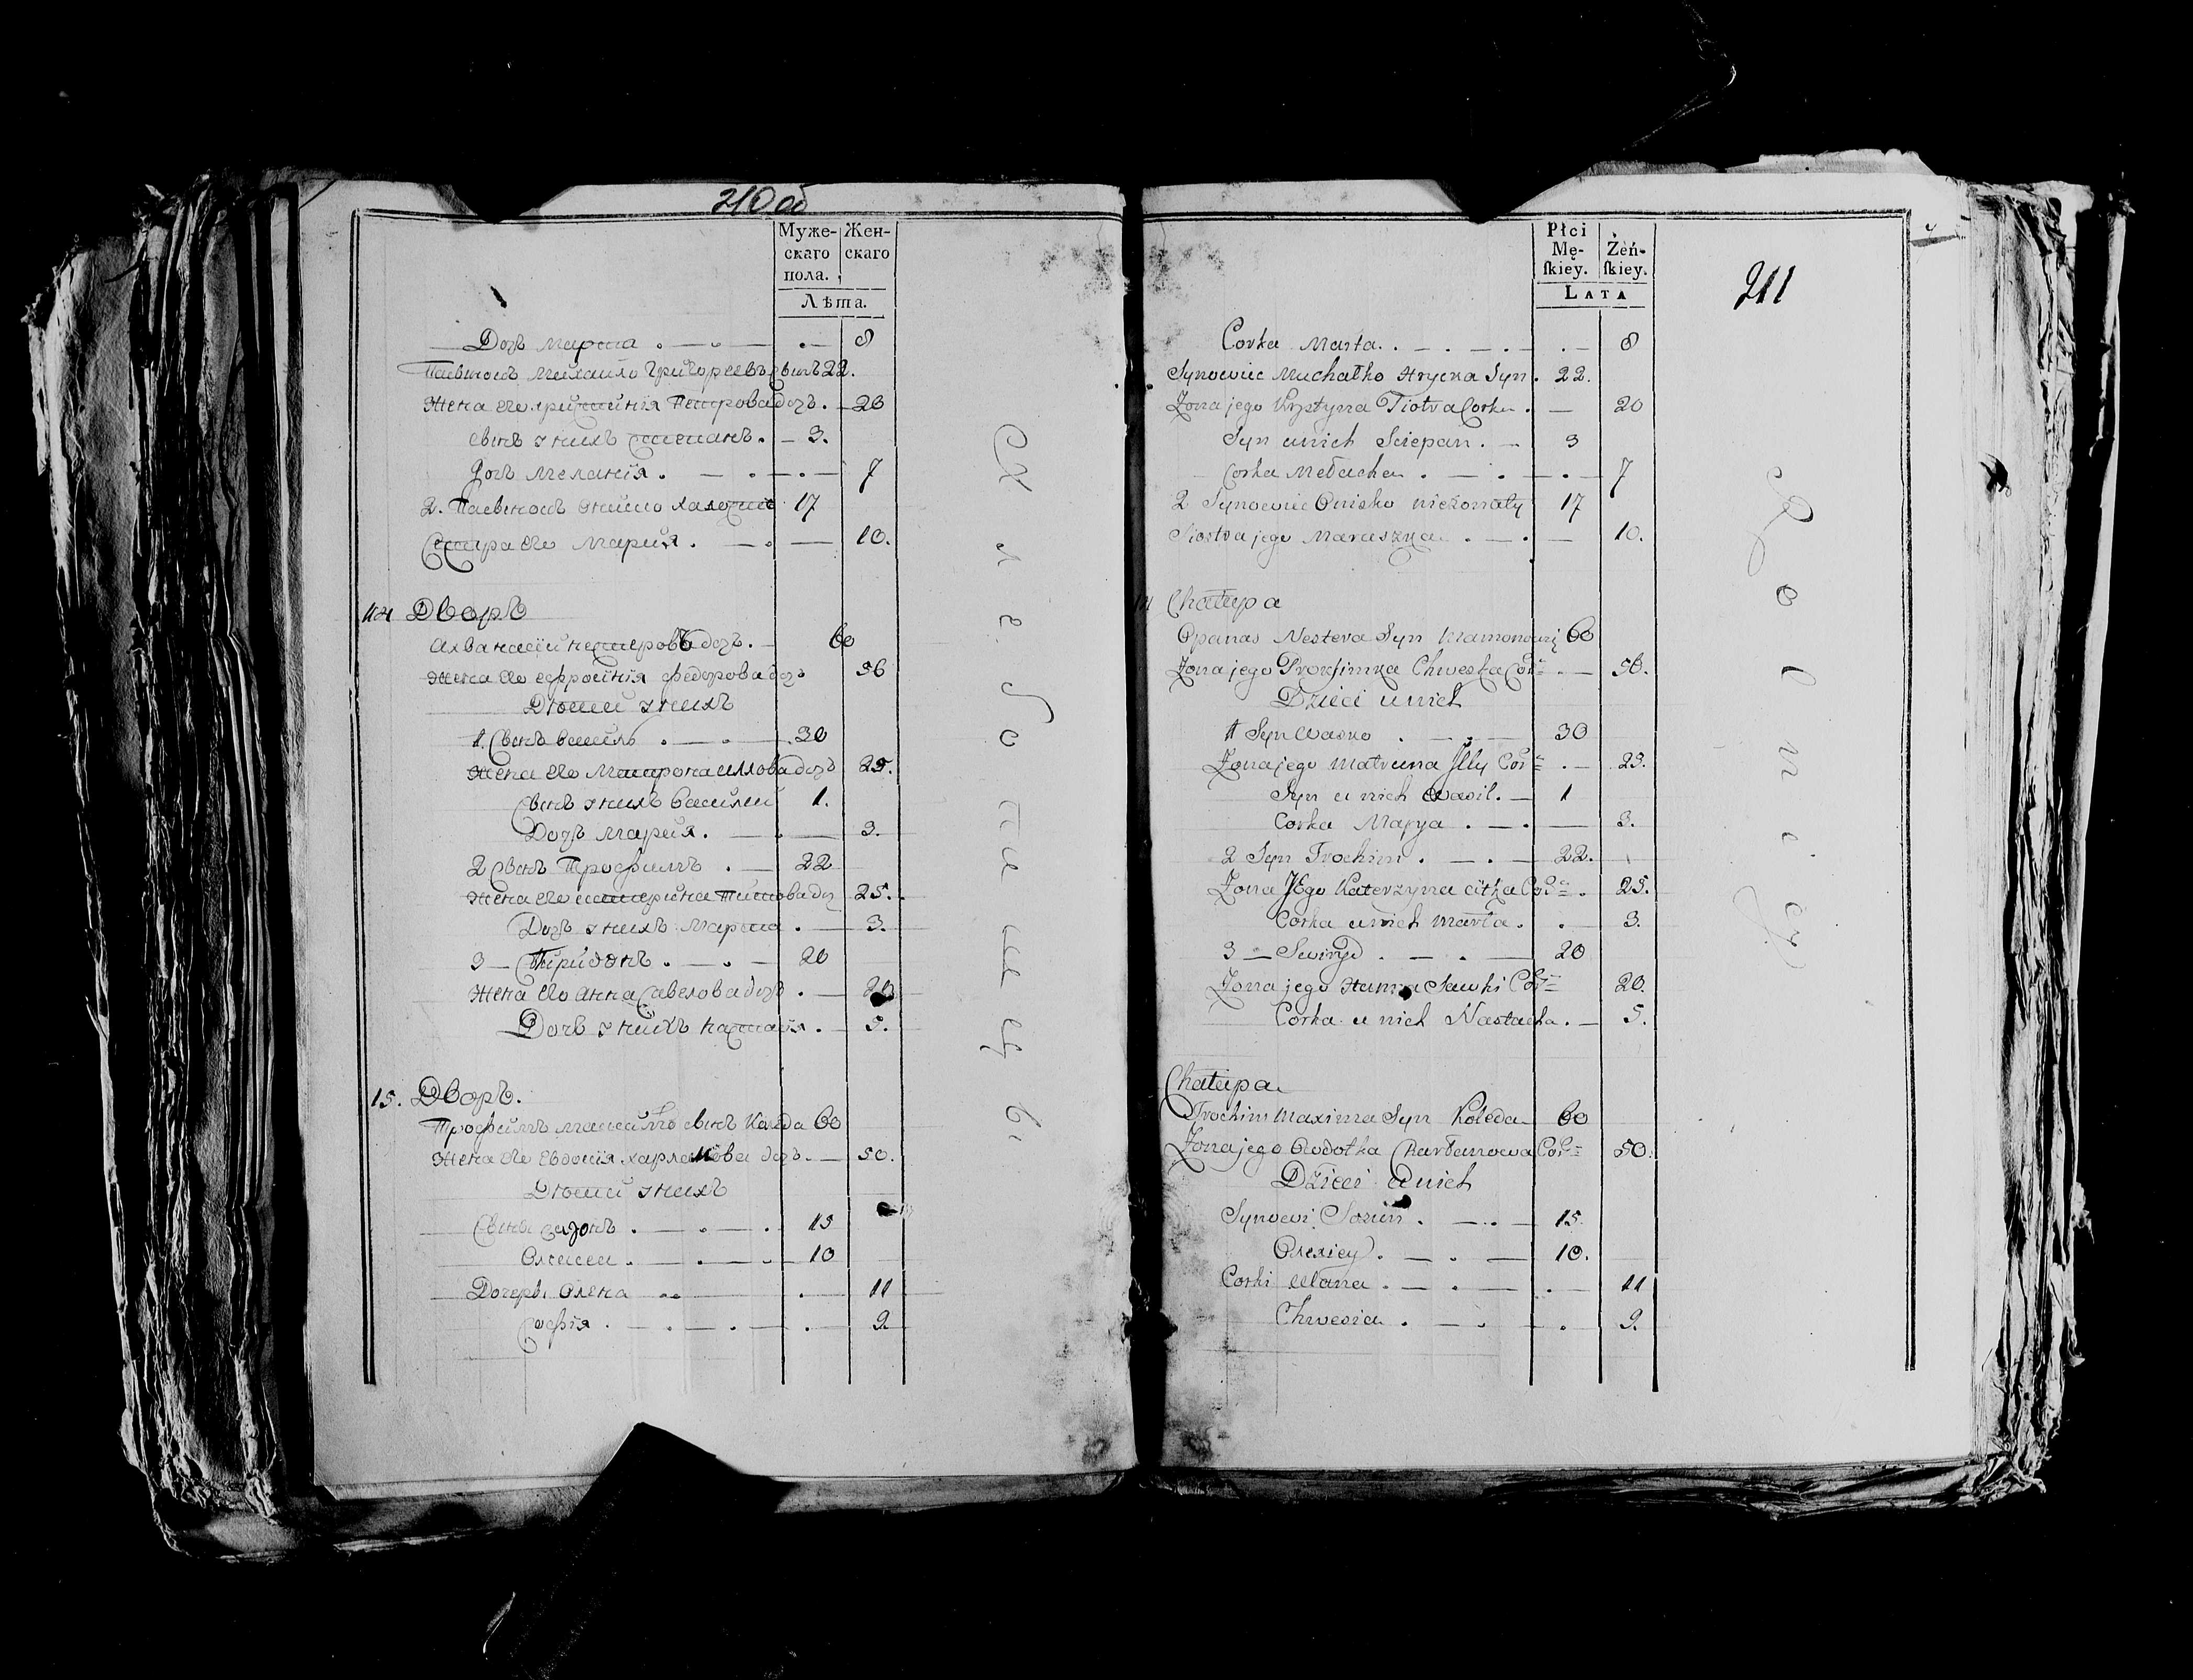 210 об
Муже-
скаго
пола.
Жен-
скаго
Лѣта.
Дочь марта 8
Михайло Григорьевъ сынъ 22.
жена его христинія петрова дочь. 20
сынъ у нихъ степанъ. 3.
дочь меланія. 7
2. ониско холостъ 17
Сестра его Марія. 10.
14 Дворъ
60
жена его ефросинія федорова дочь 56
Дѣти у нихъ
1. Сынъ василь 30
жена его Матрона иллова дочь 25.
Сынъ у нихъ василій 1.
Дочь марія. 3.
2 Сынъ Трофимъ. 22
жена его катерина титова доч 25.
Дочь у нихъ марта. 3.
3 Спиридонъ. 20
жена его Анна Савелова дочь. 20
Дочь у нихъ наталія. 5.
15. Дворъ.
Трофимъ сынъ Каляда 60
жена его Евдокія. харламова дочь. 50.
Дѣти у нихъ
Сыны сазонъ. 15
Олексей. 10
Дочери Олена 11
софія. 9.
Хлебопашцы.
Płci
Mę-
skiey.
Żeń-
skiey.
LATA
211
Corka Marta. 8
Synowiec Michałko Hrycka Syn. 22.
Zona jego Krystyna Piotra Corka. 20
Syn u nich Sciepan. 3
Corka Mełacha. 7
2 Synowiec Onisko nieżonaty 17
Siostra jego Maruszka. 10.
14 Chałupa
Opanas Nestera Syn 60
Zona jego Chwedka Cor 56.
Dzieci u nich
1 Syn Wasko 30
Zona jego Matruna Illy Cor 25.
Syn u nich Wasil. 1
Corka Marya 3.
2 Syn Trochim. 22.
Zona Jego Katerzyna Citka Cor 25.
Corka u nich Marta. 3.
3 Swiryd 20
Zona jego Hanna Sawki Cor 20.
Corka u nich Nastacha. 5.
Chałupa
Trochim Maxima Syn Koleda 60
Zona jego Owdotka Charłanowa Cor 50.
Dzieci u nich
Synowi Sozun. 15.
Olexiey. 10.
Corki Ulana 11
Chwesia. 9.
Rolnicy